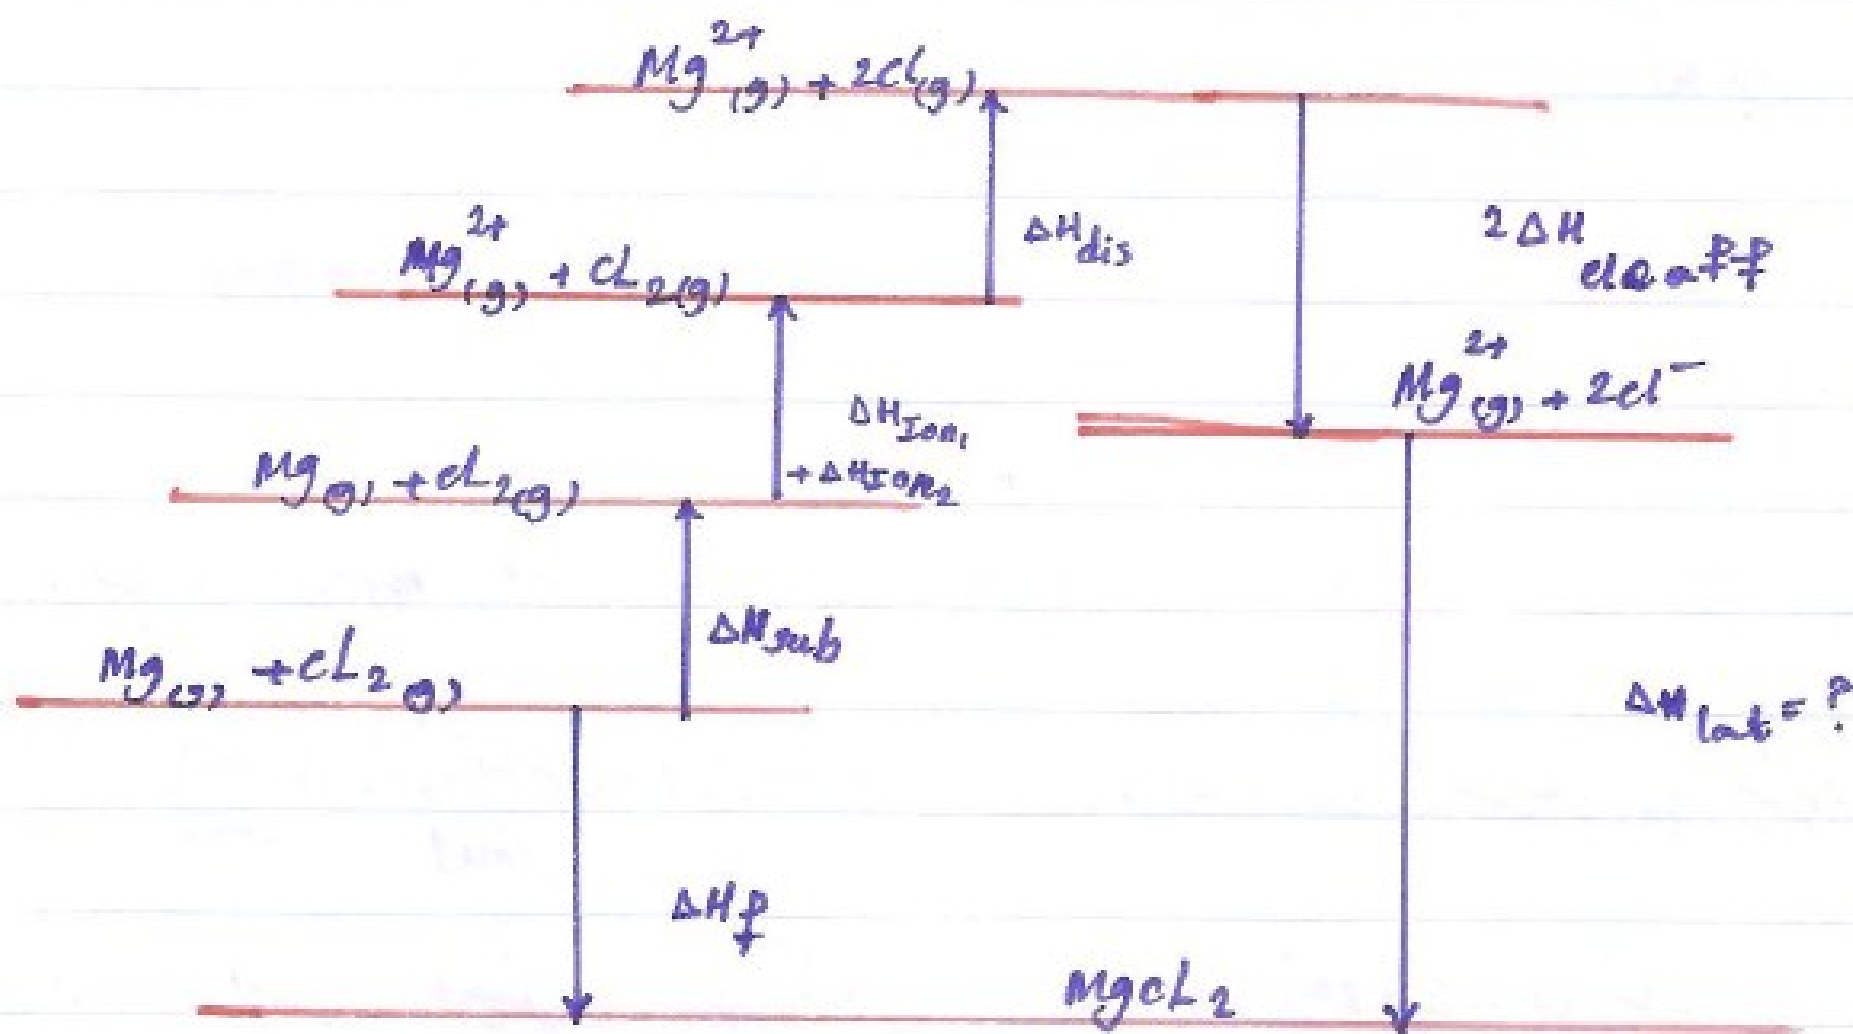 Mg²⁺(g) + 2cl(g)
ΔHdis
2ΔH ele aff
Mg²⁺(g) + cL2(g)
Mg²⁺(g) + 2cl⁻
ΔHIon1
+ ΔHIon2
Mg(g) + cL2(g)
ΔHsub
Mg(s) + cL2(g)
ΔHlat = ?
ΔHf
MgcL2